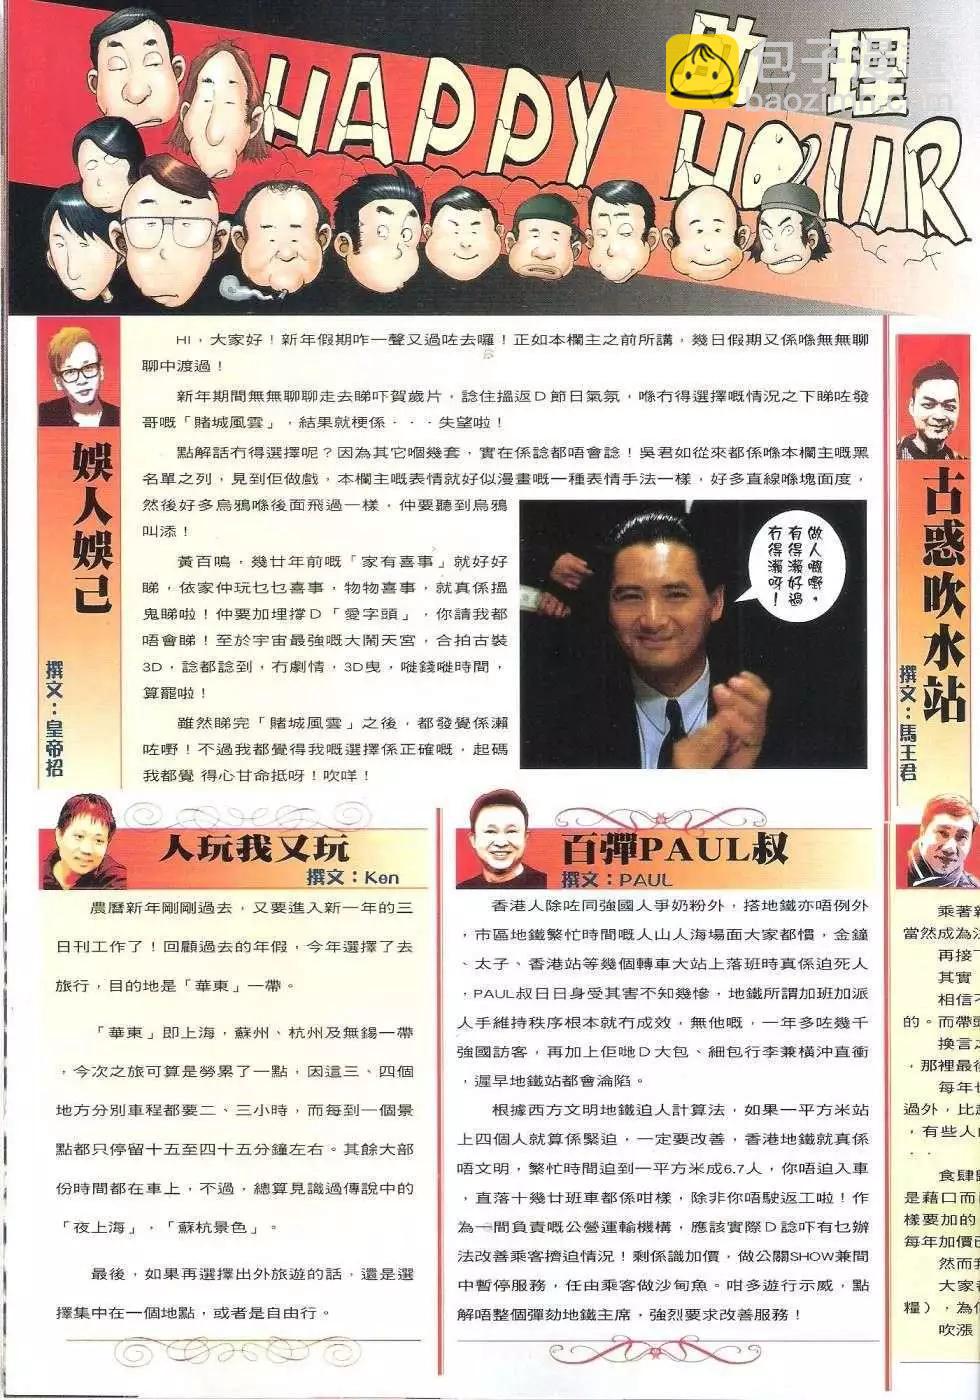 助理
HAPPY HOUR
包子漫
baozimh.com
娛人娛己
撰文：皇帝招
HI，大家好！新年假期咋一聲又過咗去囉！正如本欄主之前所講，幾日假期又係喺無無聊
聊中渡過！
新年期間無無聊聊走去睇吓賀歲片，諗住搵返D節日氣氛，喺冇得選擇嘅情況之下睇咗發
哥嘅「賭城風雲」，結果就梗係···失望啦！
點解話冇得選擇呢？因為其它嗰幾套，實在係諗都唔會諗！吳君如從來都係喺本欄主嘅黑
名單之列，見到佢做戲，本欄主嘅表情就好似漫畫嘅一種表情手法一樣，好多直線喺塊面度，
然後好多烏鴉喺後面飛過一樣，仲要聽到烏鴉
叫添！
黃百鳴，幾廿年前嘅「家有喜事」就好好
睇，依家仲玩乜乜喜事，物物喜事，就真係搵
鬼睇啦！仲要加埋撐D「愛字頭」，你請我都
唔會睇！至於宇宙最強嘅大鬧天宮，合拍古裝
3D，諗都諗到，冇劇情，3D曳，嘥錢嘥時間，
算罷啦！
雖然睇完「賭城風雲」之後，都發覺係瀨
咗嘢！不過我都覺得我嘅選擇係正確嘅，起碼
我都覺 得心甘命抵呀！吹咩！
做人嘅嘢，
有得瀨好過
冇得瀨呀！
古惑吹水站
撰文：馬王君
人玩我又玩
撰文：Ken
農曆新年剛剛過去，又要進入新一年的三
日刊工作了！回顧過去的年假，今年選擇了去
旅行，目的地是「華東」一帶。
「華東」即上海，蘇州、杭州及無錫一帶
，今次之旅可算是勞累了一點，因這三、四個
地方分別車程都要二、三小時，而每到一個景
點都只停留十五至四十五分鐘左右。其餘大部
份時間都在車上，不過，總算見識過傳說中的
「夜上海」，「蘇杭景色」。
最後，如果再選擇出外旅遊的話，還是選
擇集中在一個地點，或者是自由行。
百彈PAUL叔
撰文：PAUL
香港人除咗同強國人爭奶粉外，搭地鐵亦唔例外
，市區地鐵繁忙時間嘅人山人海場面大家都慣，金鐘
、太子、香港站等幾個轉車大站上落班時真係迫死人
，PAUL叔日日身受其害不知幾慘，地鐵所謂加班加派
人手維持秩序根本就冇成效，無他嘅，一年多咗幾千
強國訪客，再加上佢哋D大包、細包行李兼橫沖直衝
，遲早地鐵站都會淪陷。
根據西方文明地鐵迫人計算法，如果一平方米站
上四個人就算係緊迫，一定要改善，香港地鐵就真係
唔文明，繁忙時間迫到一平方米成6.7人，你唔迫入車
，直落十幾廿班車都係咁樣，除非你唔駛返工啦！作
為一間負責嘅公營運輸機構，應該實際D諗吓有乜辦
法改善乘客擠迫情況！剩係識加價，做公關SHOW兼間
中暫停服務，任由乘客做沙甸魚。咁多遊行示威，點
解唔整個彈劾地鐵主席，強烈要求改善服務！
乘著新
當然成為
再接下
其實
相信不
的。而帶
換言之
，那裡最後
每年
過外，比
，有些人
··
食肆
是藉口而
樣要加的
每年加價
然而
大家
糧），為
吹漲